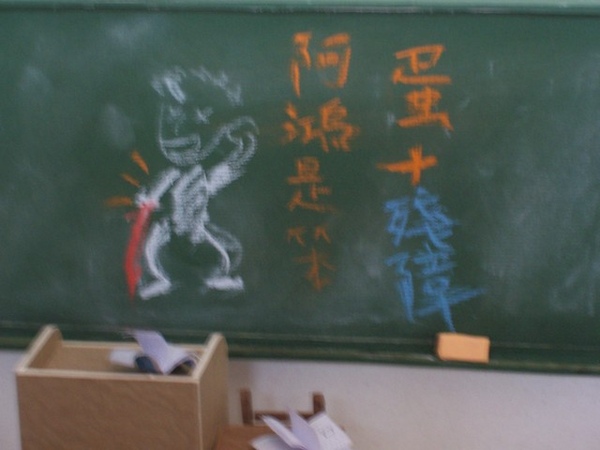 阿鴻是笨
蛋+殘障